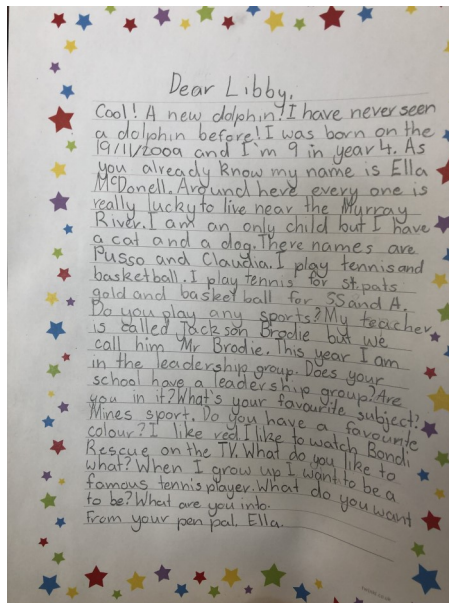 Dear Libby,
Cool! A new dolphin! I have never seen
a dolphin before! I was born on the
19/11/2009 and I'm 9 in year 4. As
you already know my name is Ella
McDonell. Around here every one is
really lucky to live near the Murray
River. I am an only child but I have
a cat and a dog. There names are
Pusso and Claudia. I play tennis and
basketball. I play tennis for st.pats
gold and basketball for SS and A.
Do you play any sports? My teacher
is called Jackson Brodie but we
call him Mr Brodie. This year I am
in the leadership group. Does your
school have a leadership group? Are
you in it? What's your favourite subject?
Mines sport. Do you have a favourite
colour? I like red I like to watch Bondi
Rescue on the TV. What do you like to
what? When I grow up I want to be a
famous tennis player. What do you want
to be? What are you into.
From your pen pal. Ella.